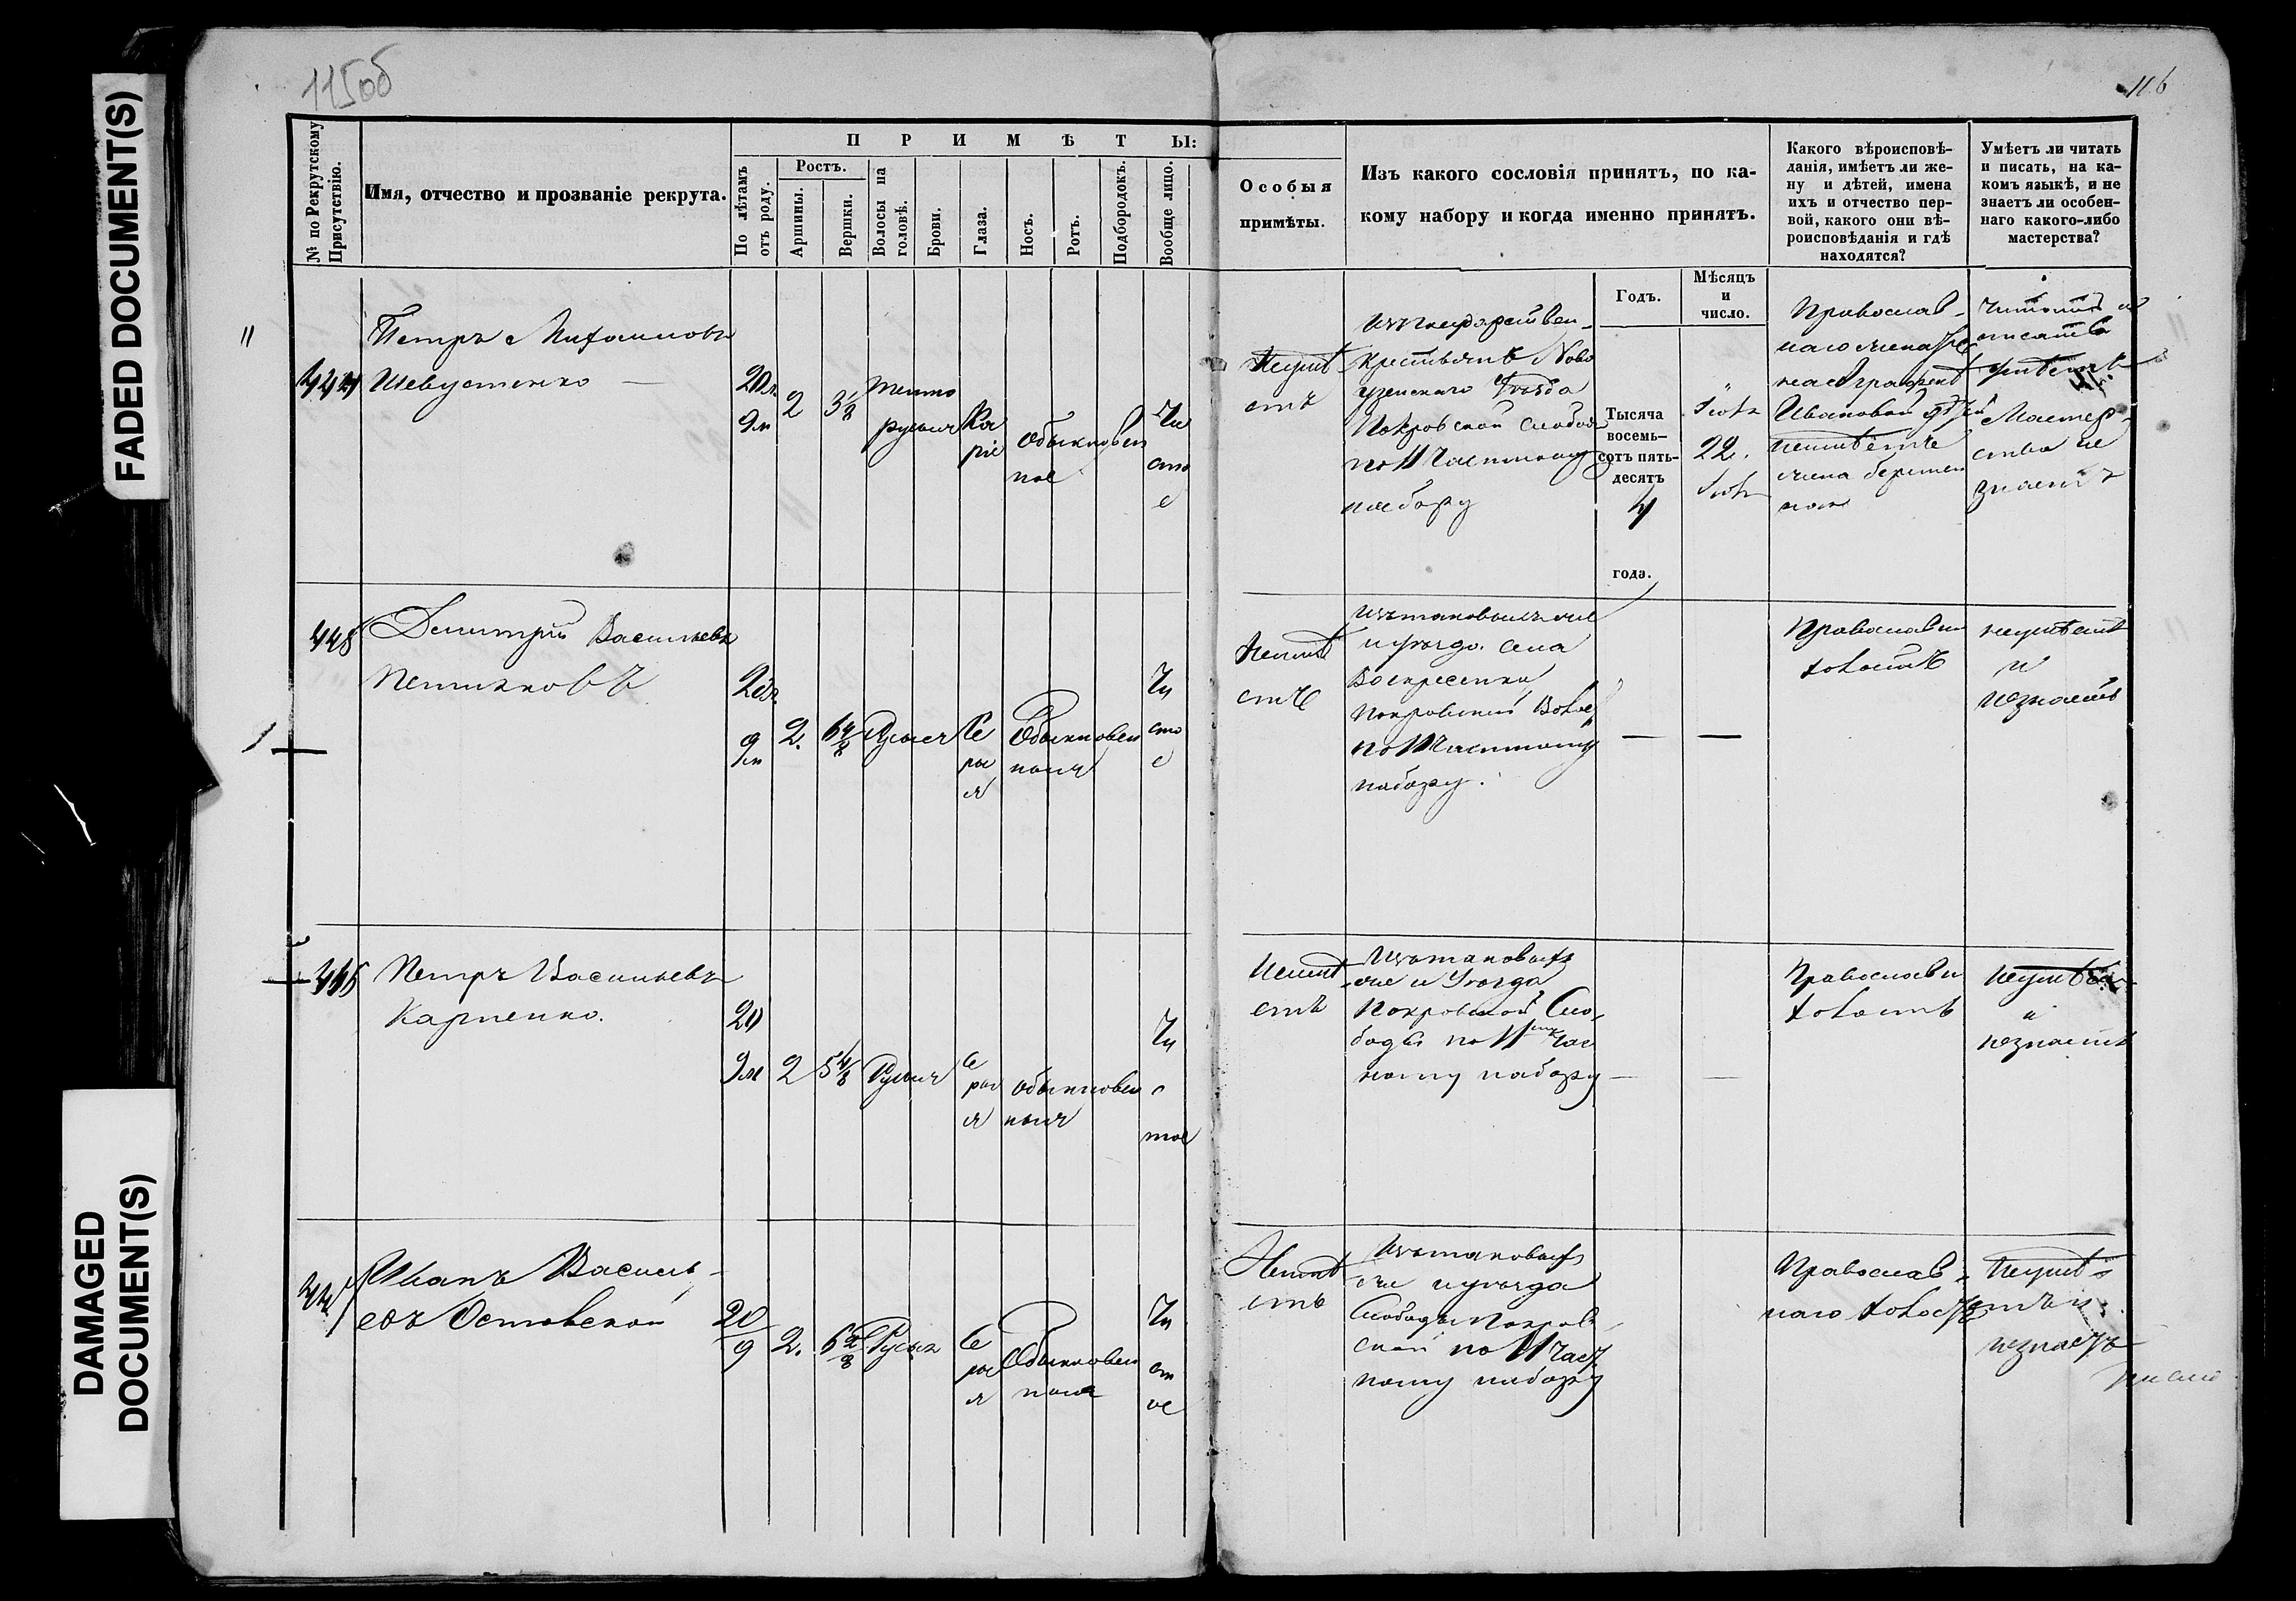 FADED DOCUMENT(S)
DAMAGED
DOCUMENT(S)
115об
116
№ по Рекрутскому Присутствію.
Имя, отчество и прозваніе рекрута.
ПРИМѢТЫ:
По лѣтамъ отъ роду.
Ростъ.
Аршины.
Вершки.
Волосы на головѣ.
Брови.
Глаза.
Носъ.
Ротъ.
Подбородокъ.
Вообще лицо.
Особыя
примѣты.
Изъ какого сословія принятъ, по ка-
кому набору и когда именно принятъ.
Какого вѣроисповѣ-
данія, имѣетъ ли же-
ну и дѣтей, имена
ихъ и отчество пер-
вой, какого они вѣ-
роисповѣданія и гдѣ
находятся?
Умѣетъ ли читать
и писать, на ка-
комъ языкѣ, и не
знаетъ ли особен-
наго какого-либо
мастерства?
Годъ.
Мѣсяцъ
и
число.
Петръ Михаиловъ
Шевустенко
20л.
9м
2
3 1/8
темно
русыя
Ка
ріе
обыкновен
ное
Чи
сто
е
Крестьянъ Ново
узенскаго Уѣзда
Покровской слобод
по 11 Частному
набору
Тысяча
восемь-
сотъ пять-
десятъ
4
года.
22.
Православ-
наго
Ивановой
Читать и
писать
умѣетъ
Мастер-
ства не
знаетъ
448
Дмитрій Васильевъ
20л.
9м
2.
6 4/8
Русыя
Се
ры
я
Обыкновен
ныя
Чи
сто
е
Неимѣ
етъ
Изътаковыхъже
иуѣзда. села
Воскресенки
Покровской Волос
по 11 Частному
набору.
Православн
холостъ
неумѣетъ
и
незнаетъ
Петръ Васильевъ
Карпенко.
20
9м
2
5 4/8
Русыя
Се
ры
я
обыкновен
ныя
Чи
с
тое
Неимѣ
етъ
Изътаковыхъ
же и Уѣзда
Покровской Сло-
боды по 11 Час
ному набору
Православн
холостъ
Неумѣетъ
и
незнаетъ
Иванъ Василь-
евъ Остовской
20
9
2.
6 2/8
Русыя
Се
ры
я
Обыкновен
ныя
Чи
ст
ое
Неимѣ
етъ
Изътаковыхъ
же иуѣзда
Слободы Покров
ской по 11 Част
ному набору
Православ-
наго холостъ
Неумѣ-
етъ и
незнаетъ